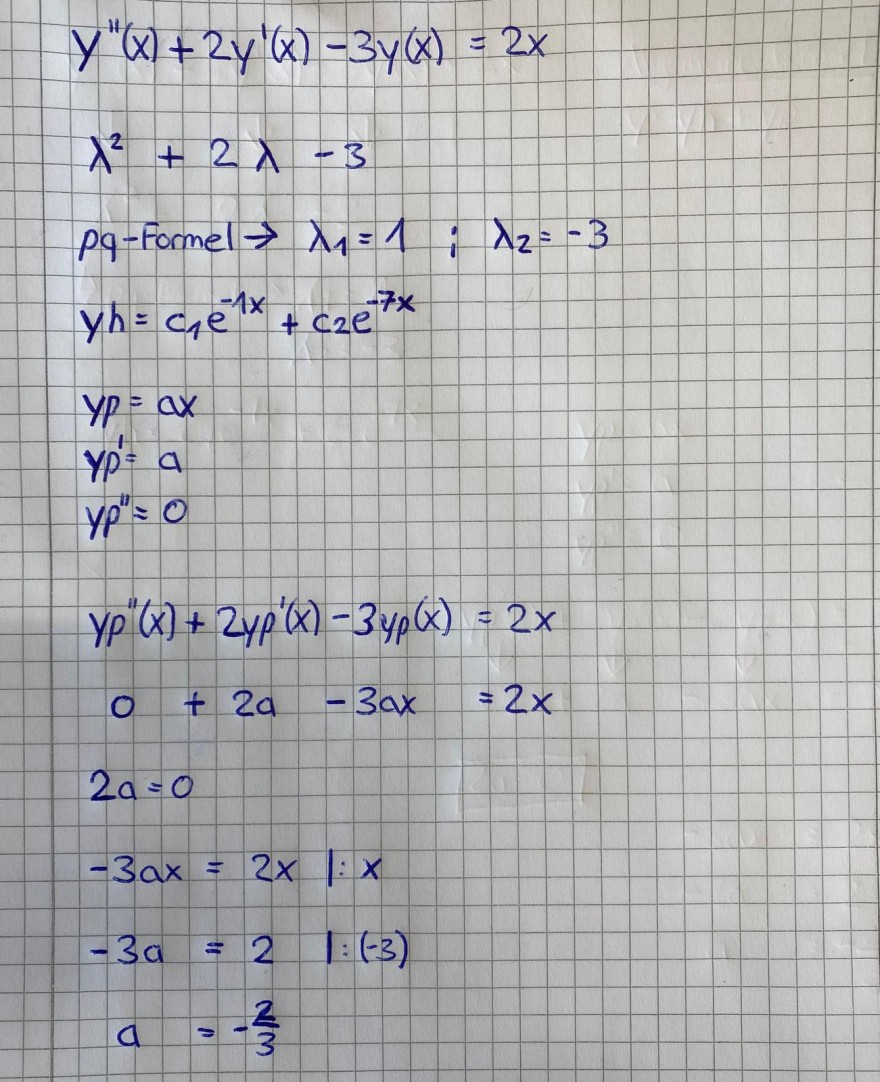 y''(x) + 2y'(x) - 3y(x) = 2x
λ² + 2λ - 3
pq-Formel → λ₁ = 1 ; λ₂ = -3
yh = c₁e^-1x + c₂e^-7x
yp = ax
yp' = a
yp'' = 0
yp''(x) + 2yp'(x) - 3yp(x) = 2x
0 + 2a - 3ax = 2x
2a = 0
-3ax = 2x |: x
-3a = 2 |: (-3)
a = -2/3